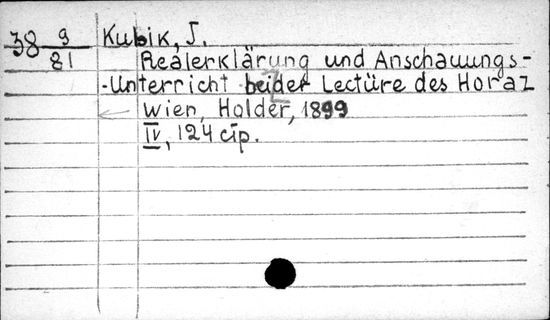 38 9/81 Kubik, J.
Realerklärung und Anschauungs-
-Unterricht bei der Lectüre des Horaz
Wien, Holder, 1899
IV, 124 стр.